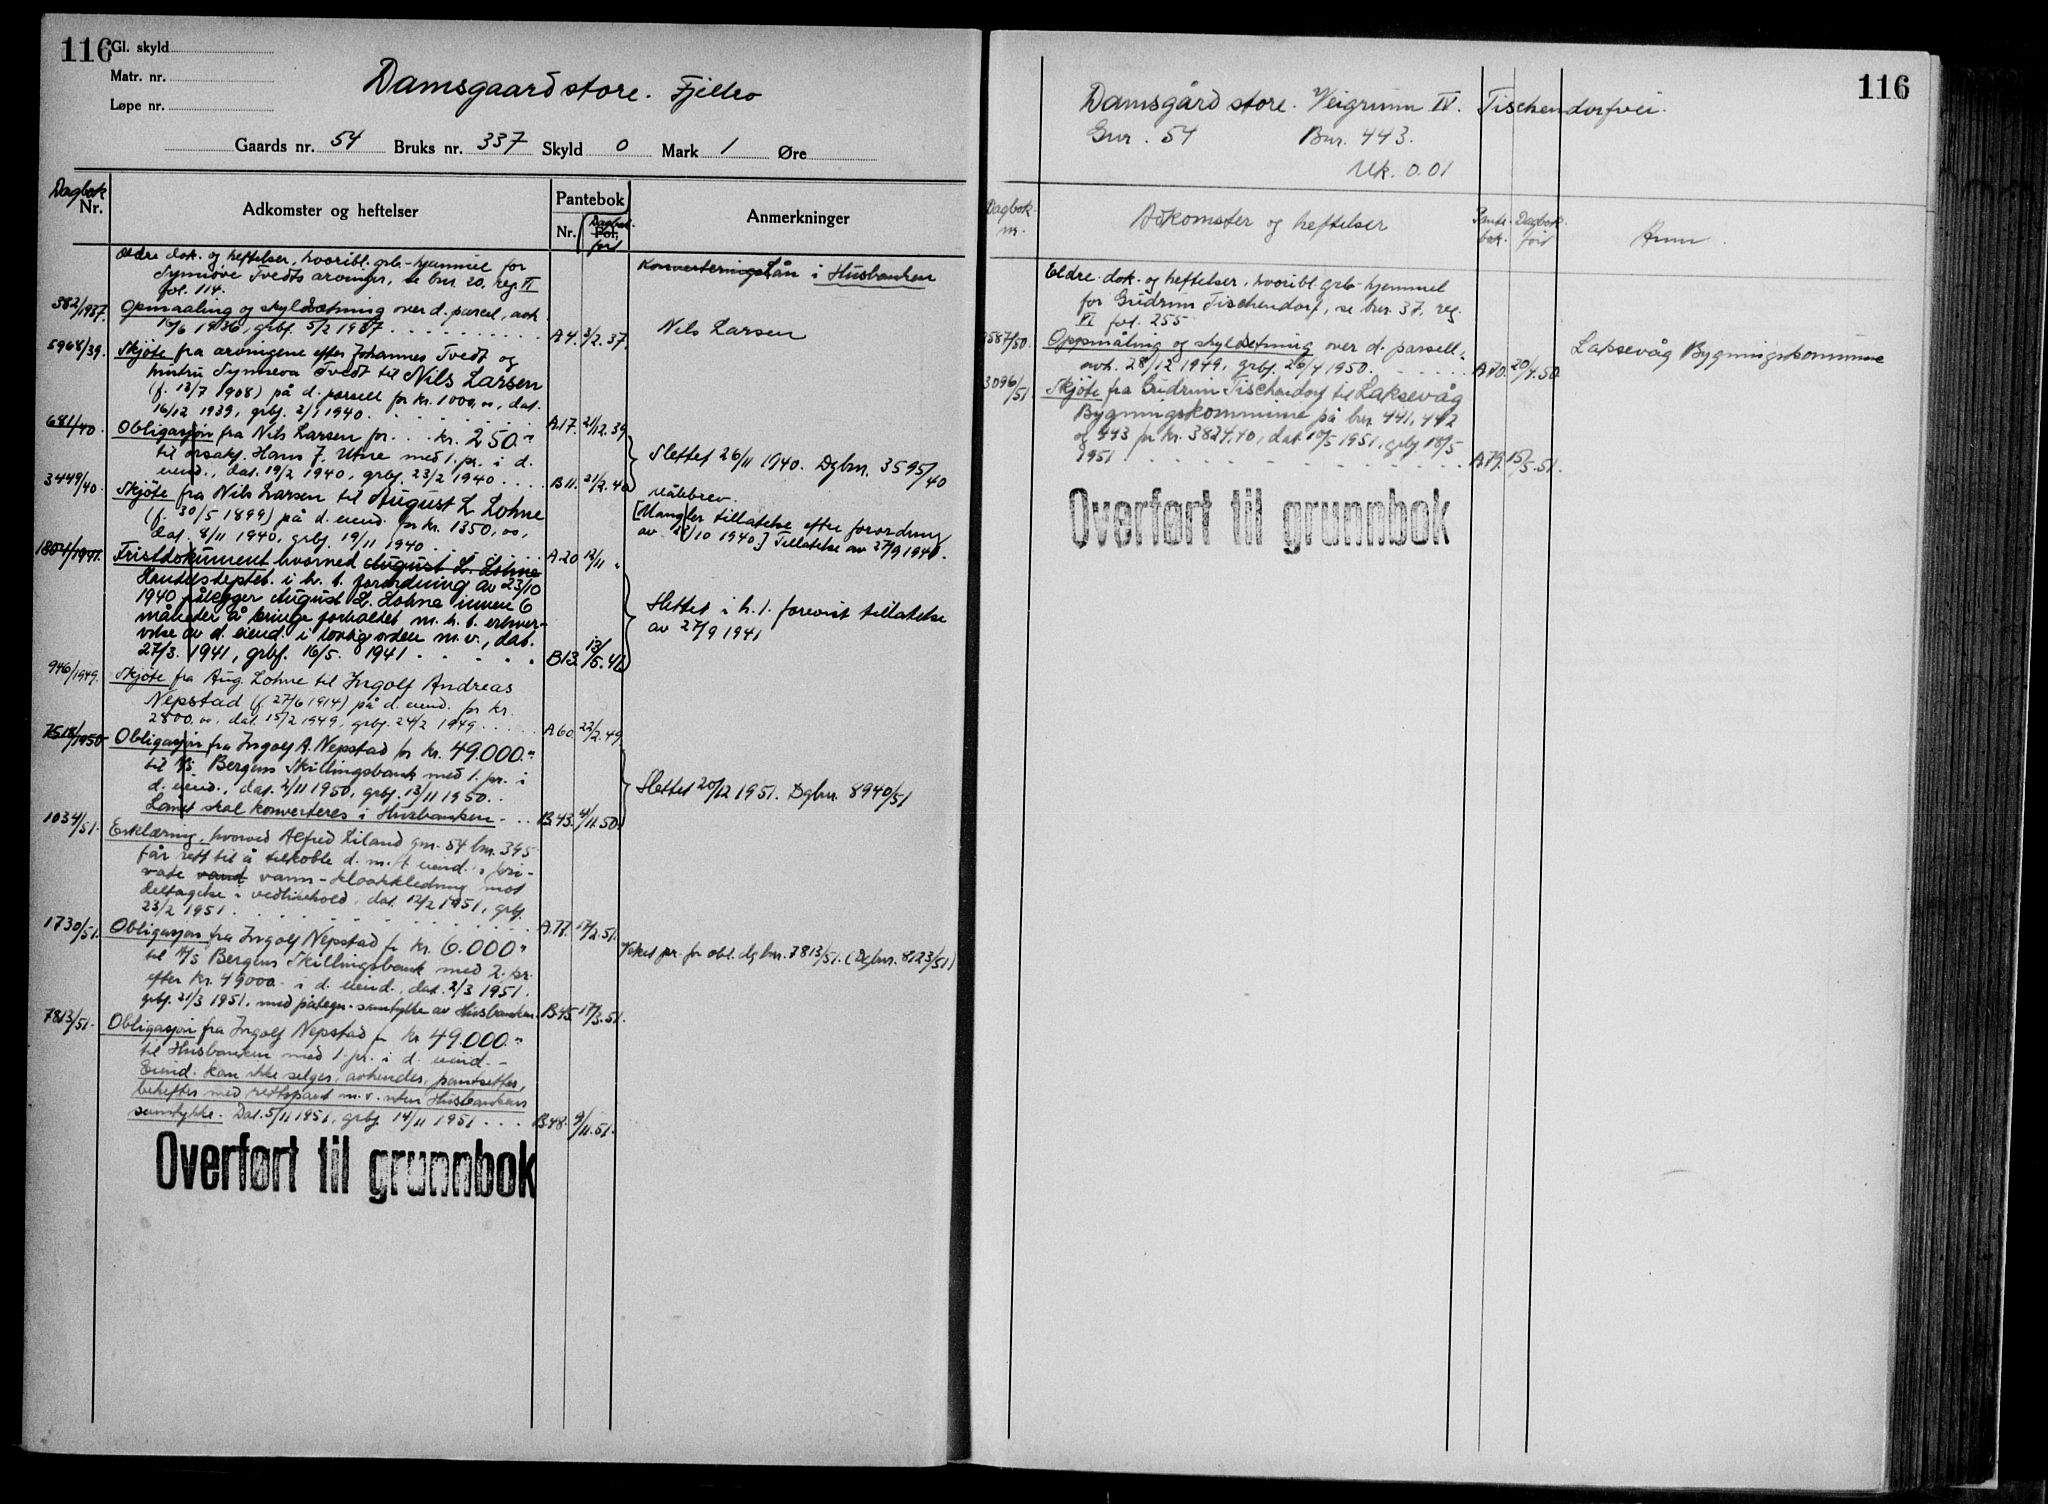 116
Gl. skyld
Matr. nr.
Løpe nr.
Damsgaard store. Fjellro
Gaards nr. 54 Bruks nr. 337 Skyld 0 Mark 1 Øre
Dagbok Nr.
Adkomster og heftelser
Pantebok
Nr. Fol. Dagbok ført
Anmerkninger
Eldre dok. og heftelser, hvoribl. grb-hjemmel for
Synnöve Tvedts arvinger, se bnr. 20, reg. VI
fol. 114.
Konverteringslån i Husbanken
382/1937. Opmaaling og skyldsætning over d. parsel, avh.
16/6 1936, grbf. 5/2 1937 A4. 3/2.37.
Nils Larsen
5968/39. Skjøte fra arvingene efter Johannes Tvedt og
hustru Synneva Tvedt til Nils Larsen
(f. 13/7 1908) på d. parsell for kr. 1000,00, dat.
16/12 1939, grbf. 2/1 1940. A17. 21/12.39
681/40. Obligasjon fra Nils Larsen for kr. 250.-
til orsakf. Hans J. Utne med 1. pr. i d.
eiend., dat. 19/2 1940, grbf. 23/2 1940 B11. 21/2.40
Slettet 26/11 1940. Dgbnr. 3595/40
3449/40. Skjøte fra Nils Larsen til August L. Lohne
(f. 30/5 1899) på d. eiend. for kr. 1350,00,
dat. 8/11 1940, grbf. 19/11 1940. A20 12/11 "
Målebrev.
[Mangler tillatelse efter forordning
av 23/10 1940] Tillatelse av 27/9 1941.
1804/1941. Fristdokument hvorved August L. Lohne
Handelsdeptet. i h. t. forordning av 23/10
1940 pålegger August L. Lohne innen 6
måneder å bringe forholdet m. h. t. erhver-
velse av d. eiend. i lovlig orden m.v., dat.
27/3. 1941, grbf. 16/5. 1941 B13. 13/5.41
Slettet i h. t. forevist tillatelse
av 27/9 1941
946/1949. Skjøte fra Aug. Lohne til Ingolf Andreas
Nepstad (f. 27/6 1914) på d. eiend. for kr.
2800.00, dat. 15/2 1949, grbf. 24/2 1949 A60. 22/2.49
7518/1950 Obligasjon fra Ingolf A. Nepstad for kr. 49.000.-
til A/S Bergens Skillingsbank med 1. pr. i
d. eiend., dat. 2/11 1950, grbf. 13/11 1950.
Lånet skal konverteres i Husbanken B.43. 4/11.50.
Slettet 20/12 1951. Dgbnr. 8940/51
1034/51. Erklæring, hvorved Alfred Liland gnr. 54 bnr. 395
får rett til å tilkoble d. m. fl. eiend.s pri-
vate vand vann-kloakkledning mot
deltagelse i vedlikehold, dat. 12/2 1951, grbf.
23/2 1951. A.77. 17/2.51.
1730/51. Obligasjon fra Ingolf Nepstad for kr. 6.000.-
til A/S Bergens Skillingsbank med 2. pr.
efter kr. 49000.- i d. eiend., dat. 2/3 1951.
grbf. 21/3 1951, med påtegn. samtykke av Husbanken. B.45. 17/3.51.
Veket pr. for obl. dgbnr. 7813/51. (Dgbnr. 8123/51)
7813/51. Obligasjon fra Ingolf Nepstad for kr 49.000.-
til Husbanken med 1. pr. i d. eiend.-
Eiend. kan ikke selges, avhendes, pantsettes,
beheftes med rettspant m.v. uten Husbankens
samtykke. Dat. 5/11 1951, grbf. 14/11 1951 B.48. 9/11.51.
Overført til grunnbok
116
Damsgård store. Veigrunn IV. Tischendorfvei.
Gnr. 54 Bnr. 443.
Mk. 0.01
Dagbok nr.
Adkomster og heftelser
Pantebok. Dagbok ført
Anm.
Eldre dok. og heftelser, hvoribl. grb-hjemmel
for Gudrun Tischendorf, se bnr. 37, reg.
VI fol. 255
2587/50. Oppmåling og skyldsetning over d. parsell,
avh. 28/12 1949, grbf. 26/4 1950. A70. 20/4.50
Laksevåg Bygningskommune
3096/51 Skjøte fra Gudrun Tischendorf til Laksevåg
Bygningskommune på bnr. 441, 442
og 443 for kr. 3824,40, dat. 10/5 1951, grbf 18/5
1951 A79. 15/5.51.
Overført til grunnbok